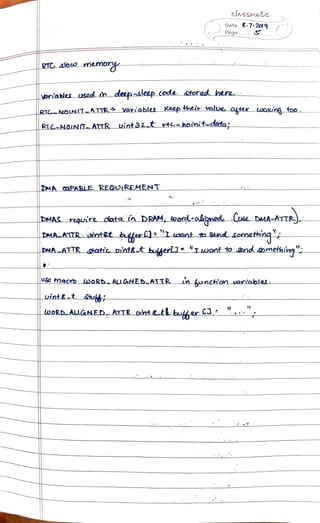 classmate
Date 8-7-2019
Page 5
RTC slow memory
Variables used in deep-sleep code stored here.
RTC_NOINIT_ATTR → Variables Keep their value after waking too.
RTC_NOINIT_ATTR uint32_t rtc_noinit_data;
DMA CAPABLE REQUIREMENT
DMAS require data in DRAM, word-aligned. (use DMA_ATTR).
DMA_ATTR uint8t buffer[] = "I want to send something";
DMA_ATTR static uint8_t buffer[] = "I want to send something";
use macro WORD_ALIGNED_ATTR in function variables.
uint8_t stuff;
WORD_ALIGNED_ATTR uint8_t buffer[] = "...";